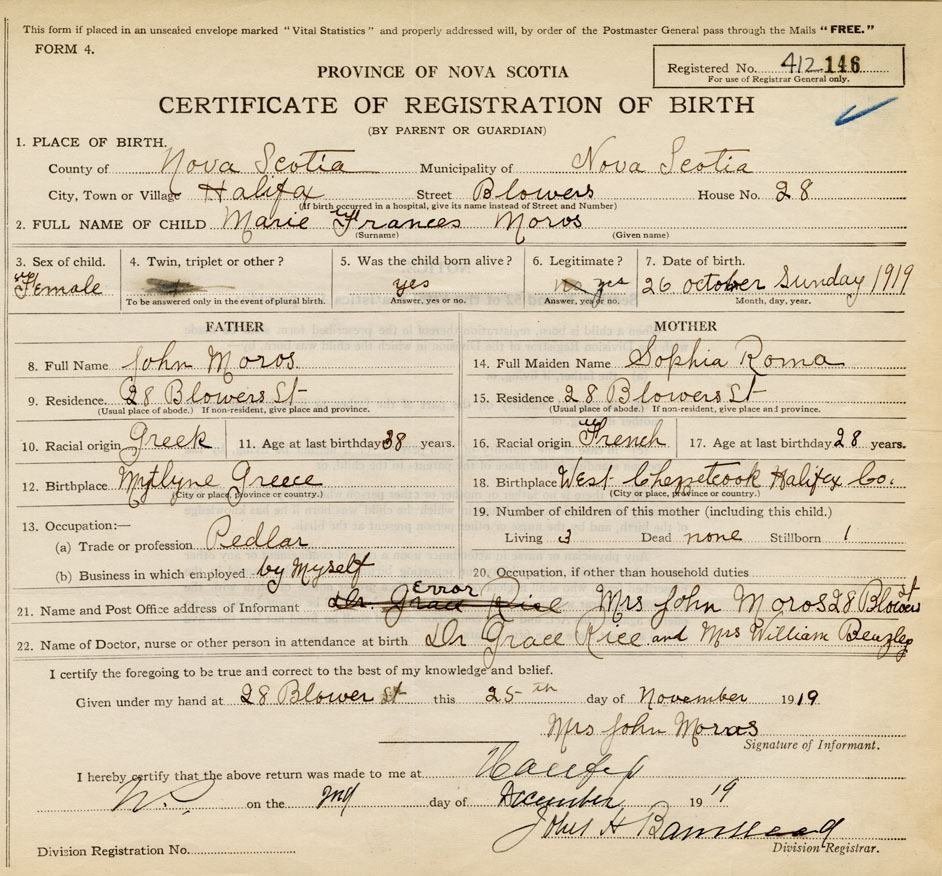 This form if placed in an unsealed envelope marked "Vital Statistics" and properly addressed will, by order of the Postmaster General pass through the Mails "FREE."
FORM 4.
Registered No. 412 146
For use of Registrar General only.
PROVINCE OF NOVA SCOTIA
CERTIFICATE OF REGISTRATION OF BIRTH
(BY PARENT OR GUARDIAN)
1. PLACE OF BIRTH.
County of Nova Scotia Municipality of Nova Scotia
City, Town or Village Halifax Street Blowers House No. 28
(If birth occurred in a hospital, give its name instead of Street and Number)
2. FULL NAME OF CHILD Marie Frances Moros
(Surname) (Given name)
3. Sex of child. 4. Twin, triplet or other? 5. Was the child born alive? 6. Legitimate? 7. Date of birth.
Female yes no yes 26 october Sunday 1919
To be answered only in the event of plural birth. Answer, yes or no. Answer, yes or no. Month, day, year.
FATHER MOTHER
8. Full Name John Moros. 14. Full Maiden Name Sophia Roma
9. Residence 28 Blowers St 15. Residence 28 Blowers St
(Usual place of abode.) If non-resident, give place and province. (Usual place of abode.) If non-resident, give place and province.
10. Racial origin Greek 11. Age at last birthday 38 years. 16. Racial origin French 17. Age at last birthday 28 years.
12. Birthplace Mytlyne Greece 18. Birthplace West Chezetcook Halifax Co.
(City or place, province or country.) (City or place, province or country.)
13. Occupation:— 19. Number of children of this mother (including this child.)
(a) Trade or profession Pedlar Living 3 Dead none Stillborn 1
(b) Business in which employed by Myself 20. Occupation, if other than household duties
Error
21. Name and Post Office address of Informant Dr. Grace Rice Mrs John Moros 28 Blowers St
22. Name of Doctor, nurse or other person in attendance at birth Dr Grace Rice and Mrs William Beazley
I certify the foregoing to be true and correct to the best of my knowledge and belief.
Given under my hand at 28 Blower St this 25th day of November 1919
Mrs John Moros
Signature of Informant.
I hereby certify that the above return was made to me at Halifax
N.S. on the 2nd day of December 1919
John H Barnstead
Division Registration No. Division Registrar.